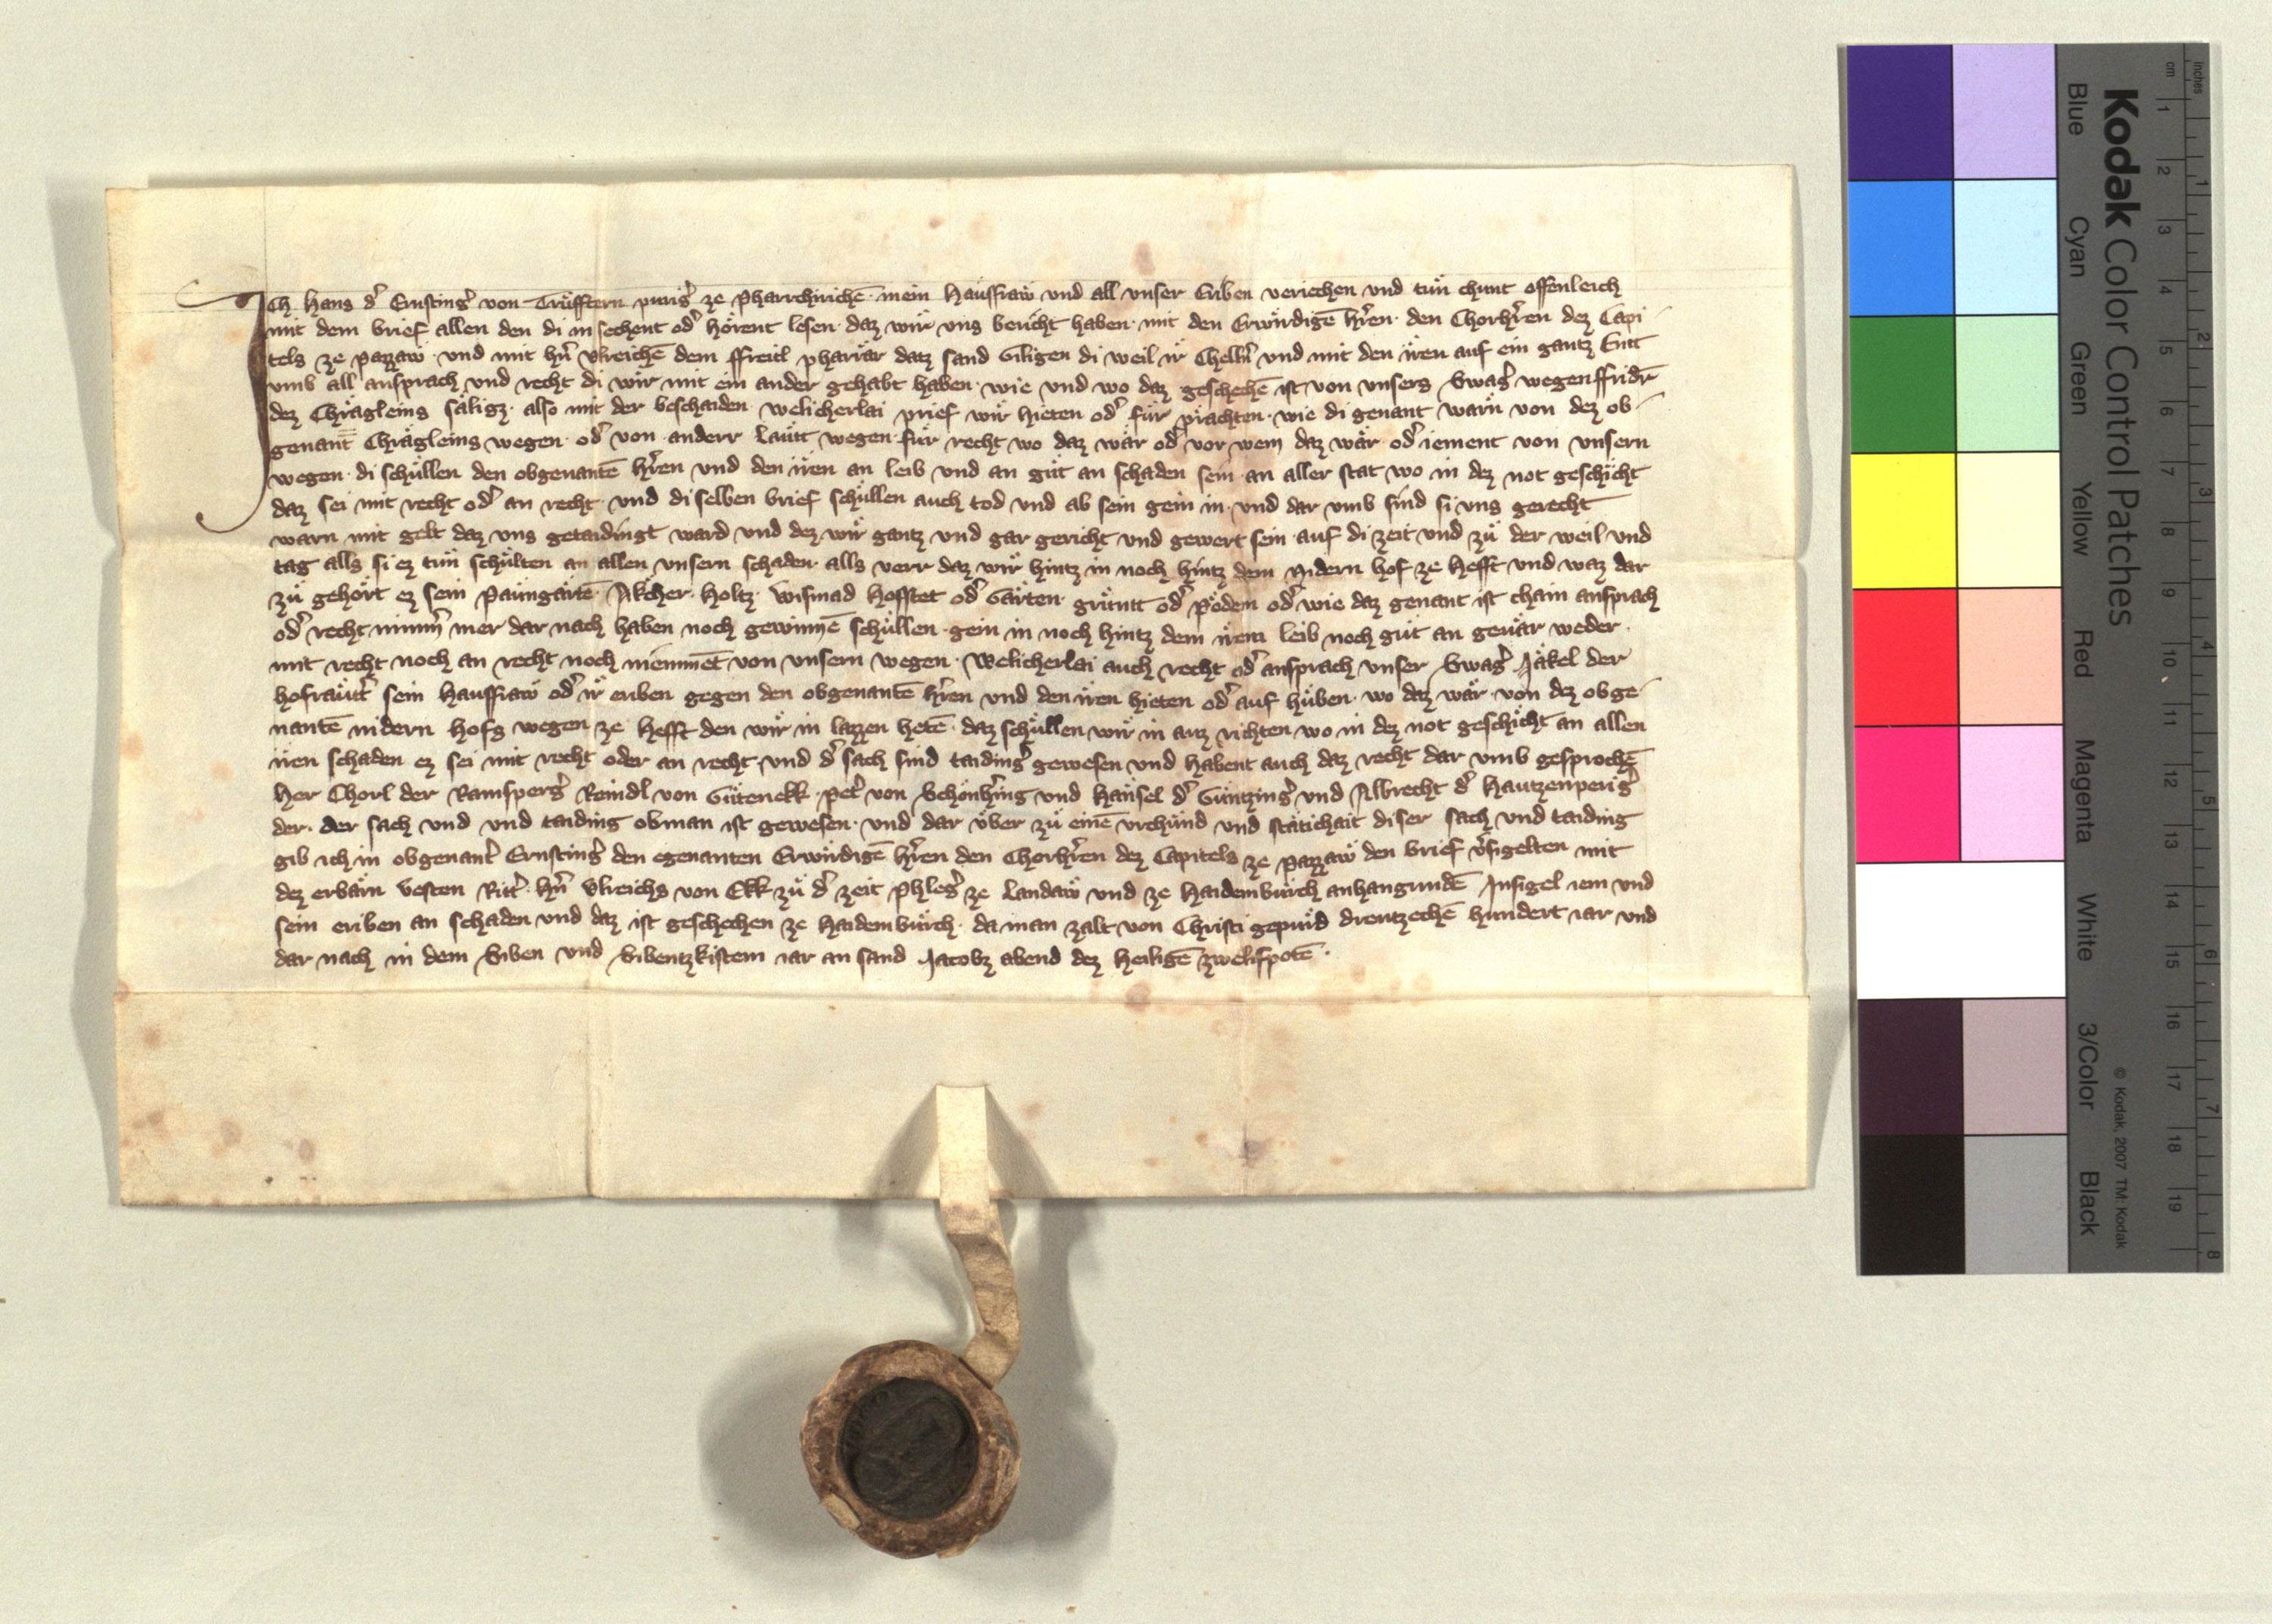 Ich Hans dˢ Ernstingˢ von Trüfftern purigˢ ze Pharrchirichē mein Hausfraw und all unser Eriben veriechen und tün chunt offenleich
mit dem brief allen den di in sechent odˢ hörent lesen daz wir uns bericht haben mit den Erwirdigē hˢren den Chorhˢren dez Capi-
tels ze pazzaw und mit hˢn Ulreichē dem ffreitl pharrär datz sand Giligen di weil ir Chellnˢ und mit den iren auf ein gantz Entt
umb all ansprach und recht di wir mit ein ander gehabt haben wie und wo daz geschechē ist von unsers Swagˢ wegen ffridr̄
dez Chrägleins säligz also mit der beschaiden welicherlai prief wir hieten odˢ für prächten wie di genant wärn von dez ob-
genant̄ Chrägleins wegen odˢ von anderr läutt wegen für recht wo daz wär odˢ vor wem daz wär odˢ iement von unsern
wegen di schüllen den obgenantē hˢren und den iren an leib und an güt an schaden sein an aller stat wo in dez not geschicht
daz sei mit recht odˢ an recht und di selben brief schüllen auch tod und ab sein gein in und dar umb sind si uns gerecht
warn mit gelt daz uns getaidingt ward und dez wir gantz und gar gericht und gewert sein auf di zeit und zü der weil und
tag alls si ez tün schülten an allen unsern schaden alls verr daz wir hintz in noch hintz dem Nidern hof ze Hefft und waz dar
zü gehört ez sein paumgärtē Äkcher holtz wismad hofstet odˢ Gärten grüntt odˢ pödem odˢ wie daz genant ist chain ansprach
odˢ recht nimmˢ mer dar nach haben noch gewinnē schüllen gein in noch hintz dem irem leib noch güt an gevär weder
mit recht noch an recht noch niemmēt von unsern wegen Welicherlai auch recht odˢ ansprach unser Swagˢ Jäkel der
hofräutˢ sein hausfraw odˢ ir eriben gegen den obgenantē hˢren und den iren hieten odˢ auf hüben wo daz wär von dez obge-
nantē nidern hofs wegen ze Hefft den wir in lazzen hetē daz schüllen wir in auz richten wo in dez not geschicht an allen
iren schaden ez sei mit recht oder an recht und dˢ sach sind taidingˢ gewesen und habent auch daz recht dar umb gesprochē
her Chorl der Ramspergˢ Reindl von Gütenekk Petˢ von Schönhˢing und Hänsel dˢ Güntzingˢ und Albrecht dˢ Hautzenperigˢ
der der sach und und taiding obman ist gewesen und dar über zü einē urchünd und stätichait diser sach und taiding
gib ich in obgenantˢ Ernstingˢ den egenanten Erwirdigē hˢren den Chorhˢren dez Capitels ze pazzaw den brief vˢsigelten mit
dez erbärn vesten Ritˢ hˢn Ulreichs von Ekk zü dˢ zeit phlegˢ ze Landaw und ze Haidemburch anhangundē Insigel iem und
sein eriben an schaden und daz ist geschechen ze Haidemburch da man zalt von Christi gepürd dreutzechē hundert iar und
dar nach in dem Siben und Sibentzkistem iar an sand Jacobz abend dez heiligē zwelifpotē
Kodak Color Control Patches
Blue Cyan Green Yellow Red Magenta White 3/Color Black
© Kodak, 2007 TM: Kodak
inches 1 2 3 4 5 6 7 8
cm 1 2 3 4 5 6 7 8 9 10 11 12 13 14 15 16 17 18 19